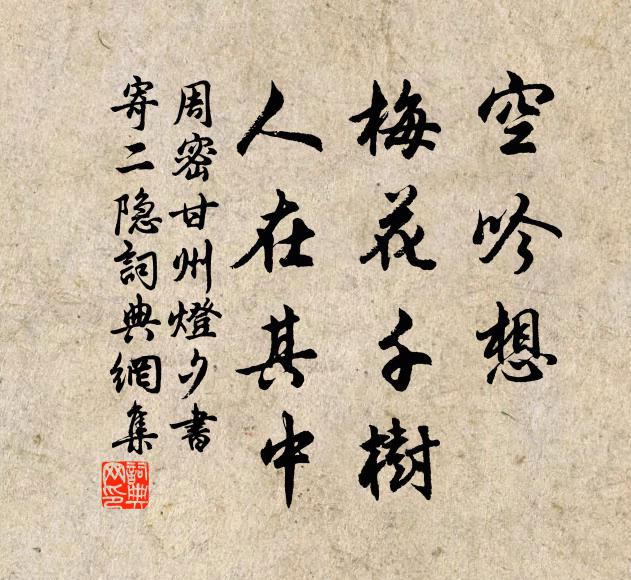 空吟想
梅花千樹
人在其中
周密甘州燈夕書
寄二隐詞典網集
詞典
网印